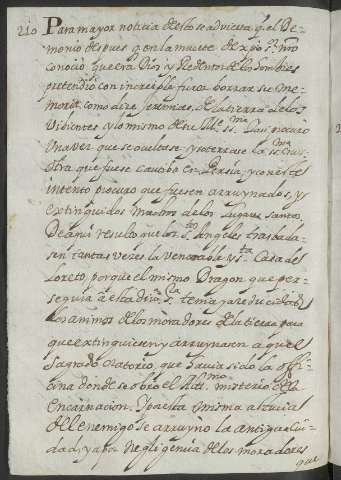 210 Para mayor noticia de esto se advierta q. el De-
monio despues q. en la muerte de xpõ Sʳ. nrõ
conocio que era Dios y Redentor de los hombres
pretendio con increyble furor borrar su me-
moria, como dice Jeremias, de la tierra de los
vibientes y lo mismo de su Mᵉ. SSᵐᵃ.
una vez que se ocultase y soterrase la SSᵐᵃ Cruz
otra que fuese cautiba en Persia, y con este
intento procuro que fuesen arruynados, y
extinguidos muchos de los lugares santos.
De aqui resulto que los Sᵗᵒˢ Angeles trasbada-
sen tantas vezes la venerable y Sᵗᵃ Casa de
Loreto, porque el mismo Dragon que per-
seguia a esta divᵃ. Sʳᵃ tenia ya reducidos
los animos de los moradores de la tierra para
que extinguiesen y arruynasen aquel
Sagrado Oratorio, que havia sido la offi-
cina donde se obro el altᵐᵒ misterio de la
Encarnacion. Y por esta misma astucia
del enemigo se arruyno la antigua ciu-
dad, ya por negligencia de los moradores
que